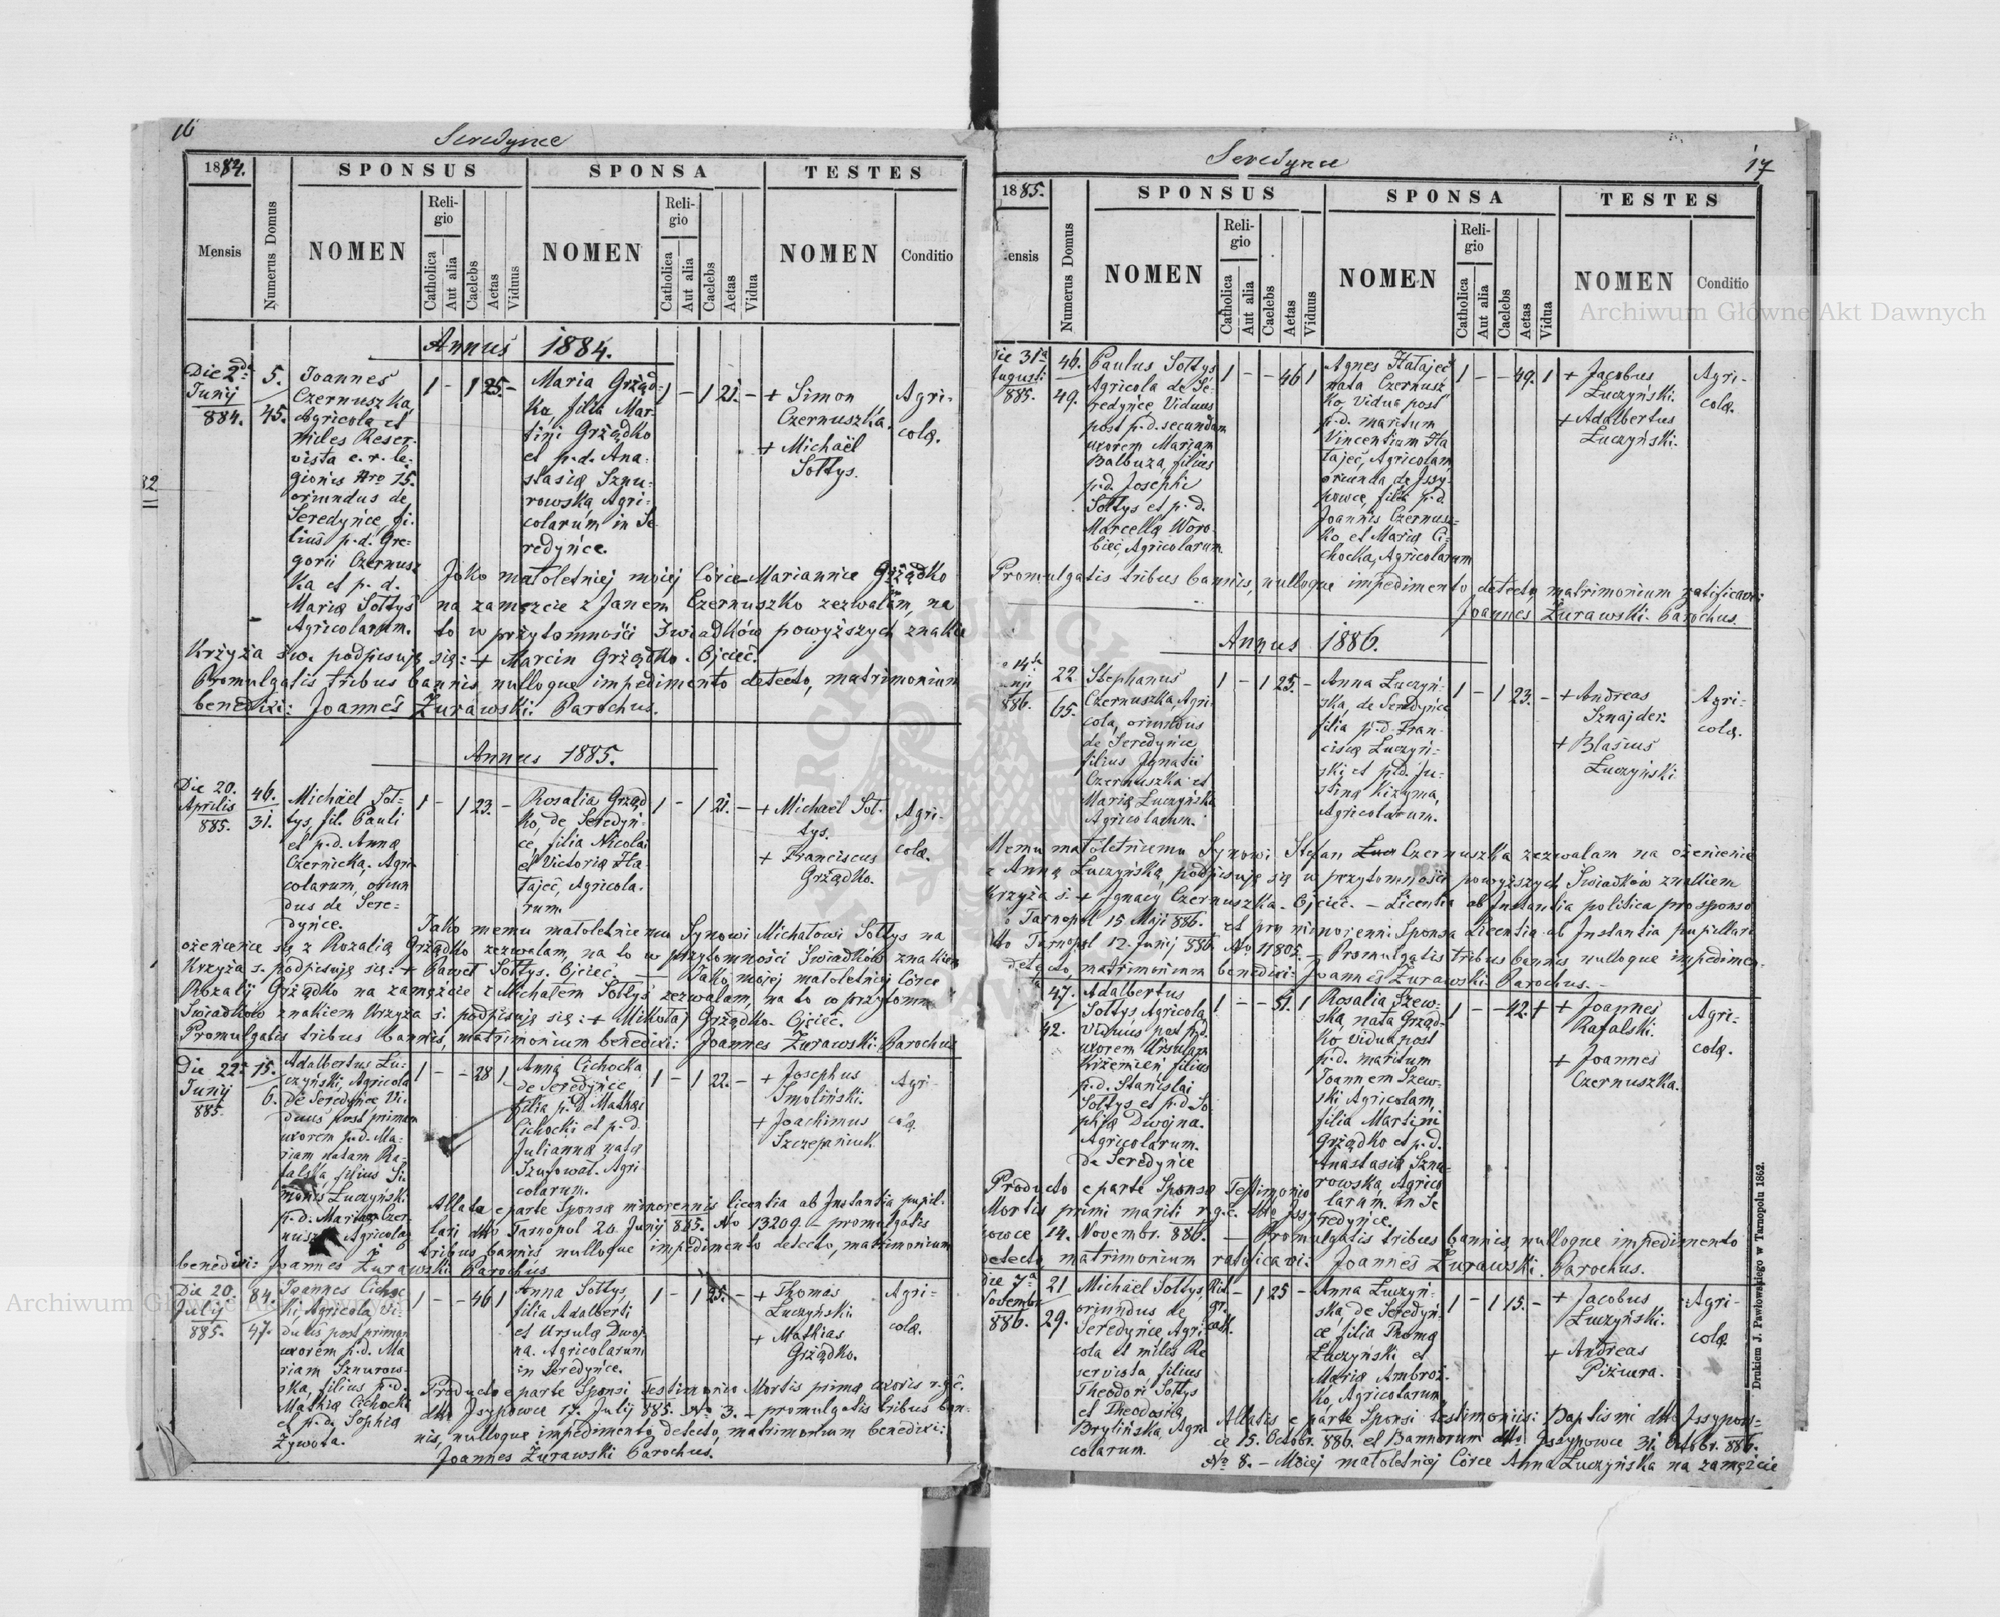 16
Seredynce
1884.
Mensis
Numerus Domus
SPONSUS
NOMEN
Religio
Catholica
Aut alia
Caelebs
Aetas
Viduus
SPONSA
NOMEN
Religio
Catholica
Aut alia
Caelebs
Aetas
Vidua
TESTES
NOMEN
Conditio
Annus 1884.
Die 2da
Junij
884.
5.
45.
Joannes
Czernuszka,
Agricola et
miles Reser-
vista c. r. le-
gionis Nro 15.
oriundus de
Seredyńce, fi-
lius p. d. Gre-
gorii Czernusz
ka et p. d.
Mariæ Sołtys
Agricolarum.
1 - 1 25. -
Maria Grząd-
ko, filia Mar-
tini Grządko
et p. d. Ana-
stasiæ Sznu-
rowska, Agri-
colarum in Se-
redyńce.
1 - 1 21. -
+ Simon
Czernuszka.
+ Michaël
Sołtys.
Agri-
colæ.
Jako małoletniej mojej Córce Mariannie Grządko
na zamęzcie z Janem Czernuszko zezwalam, na
to w przytomności Świadków powyższych znakiem
Krzyża św. podpisuję się: + Marcin Grządko. Ojciec.
Promulgatis tribus bannis nulloque impedimento detecto, matrimonium
benedixi: Joannes Żurawski. Parochus.
Annus 1885.
Die 20.
Aprilis
885.
46.
31.
Michaël Soł-
tys, fil. Pauli
et p. d. Annæ
Czernicka, Agri-
colarum, oriun
dus de Sere-
dyńce.
1 - 1 23. -
Rosalia Grząd
ko, de Seredyń-
ce, filia Nicolai
et Victoriæ Ha-
łajeć, Agricola-
rum.
1 - 1 21. -
+ Michaël Soł-
tys.
+ Franciscus
Grządko.
Agri-
colæ.
Jako memu małoletniemu Synowi Michałowi Sołtys na
ożenienie się z Rozalią Grządko zezwalam, na to w przytomności Świadków znakiem
Krzyża s. podpisuję się: + Paweł Sołtys. Ojciec. - Jako mojej małoletniej Córce
Rozalij Grządko na zamęzcie z Michałem Sołtys zezwalam, na to w przytomn.
Świadków znakiem Krzyża s. podpisuję się: + Mikołaj Grządko. Ojciec.
Promulgatis tribus bannis, matrimonium benedixi: Joannes Żurawski. Parochus
Die 22.
Junij
885.
15.
6.
Adalbertus Łu-
czyński, Agricola
de Seredyńce Vi-
duus post primam
uxorem p. d. Ma-
riam natam Ra-
falska filius Si-
monis Łuczyński
p. d. Mariæ Czer-
nuszka Agricolar.
1 - - 28 1
Anna Cichocka,
de Seredyńce,
filia p. d. Mathæi
Cichocki et p. d.
Juliannæ natæ
Szufował. Agri
colarum.
1 - 1 22. -
+ Josephus
Smoliński.
+ Joachimus
Szczepaniuk.
Agri-
colæ.
Allata e parte Sponsæ minorennis licentia ab Instantia pupil-
lari dtto Tarnopol 20. Junij 885. No 13209. - promulgatis
tribus bannis nulloque impedimento detecto, matrimonium
benedixi: Joannes Żurawski. Parochus
Die 20.
Julij
885.
84.
47.
Joannes Cichoc
ki, Agricola, Vi-
duus post primam
uxorem p. d. Ma
riam Sznurow-
ska, filius p. d.
Mathiæ Cichocki
et p. d. Sophiæ
Żywota.
1 - - 46 1
Anna Sołtys,
filia Adalberti
et Ursulæ Dwoj-
na. Agricolarum
in Seredyńce.
1 - 1 25. -
+ Thomas
Łuczyński
+ Mathias
Grządko.
Agri-
colæ.
Producto e parte Sponsi Testimonio Mortis primæ uxoris r. g. c.
dtto Jssypowce 17. Julij 885. No 3. - promulgatis tribus ban-
nis, nulloque impedimento detecto, matrimonium benedixi:
Joannes Żurawski Parochus.
Seredynce
17
1885.
ensis
Numerus Domus
SPONSUS
NOMEN
Religio
Catholica
Aut alia
Caelebs
Aetas
Viduus
SPONSA
NOMEN
Religio
Catholica
Aut alia
Caelebs
Aetas
Vidua
TESTES
NOMEN
Conditio
Archiwum Główne Akt Dawnych
Die 31a
Augusti
885.
46.
49.
Paulus Sołtys
Agricola de Se-
redyńce, Viduus
post p. d. secundam
uxorem Mariam
Balbuza, filius
p. d. Josephi
Sołtys et p. d.
Marcellæ Woro-
bieć, Agricolarum.
1 - - 46 1
Agnes Hałajeć
nata Czernusz
ko Vidua post
p. d. maritum
Vincentium Ha
łajeć, Agricolam,
oriunda de Jssy-
powce, filia p. d.
Joannis Czernusz-
ko et Mariæ Ci-
chocka, Agricolarum
1 - - 49. 1
+ Jacobus
Łuczyński.
+ Adalbertus
Łuczyński.
Agri-
colæ.
Promulgatis tribus bannis, nulloque impedimento detecto, matrimonium ratificavi:
Joannes Żurawski. Parochus
Annus 1886.
14ta
886.
22
65.
Stephanus
Czernuszka, Agri-
cola, oriundus
de Seredyńce
filius Jgnatii
Czernuszka et
Mariæ Łuczyńska,
Agricolarum.
1 - 1 25. -
Anna Łuczyń-
ska, de Seredyńce,
filia p. d. Fran-
cisci Łuczyń-
ski et p. d. Ju-
stinæ Kizyma,
Agricolarum.
1 - 1 23. -
+ Andreas
Sznajder.
+ Blasius
Łuczyński
Agri-
colæ.
Memu małoletniemu Synowi Stefan Czernuszka zezwalam na ożenienie
z Anną Łuczyńską, podpisuję się w przytomności powyższych Świadków znakiem
Krzyża s. + Jgnacy Czernuszka. Ojciec. - Licentia ab Instantia politica pro sponso
Tarnopol 15 Maji 886. et pro minorenni Sponsa Licentia ab Instantia pupillari
dtto Tarnopol 12. Junij 886. No 11805. - Promulgatis tribus bannis nulloque impedimen.
detecto, matrimonium benedixi: Joannes Żurawski Parochus. -
47.
42.
Adalbertus
Sołtys Agricola
Viduus post p. d.
uxorem Ursulam
Krzemień, filius
p. d. Stanislai
Sołtys et p. d. So
phiæ Dwojna.
Agricolarum.
de Seredyńce
1 - - 51. 1
Rosalia Szew-
ska, nata Grząd-
ko Vidua post
p. d. maritum
Joannem Szew-
ski Agricolam,
filia Martini
Grządko et p. d.
Anastasiæ Sznu-
rowska, Agrico
larum in Se
redyńce.
1 - - 42. 1
+ Joannes
Rafalski.
+ Joannes
Czernuszka.
Agri-
colæ.
Producto e parte Sponsæ Testimonio
Mortis primi mariti r. g. c. dtto Jssy
powce 14. Novembr. 886. - Promulgatis tribus bannis, nulloque impedimento
detecto matrimonium ratificavi: Joannes Żurawski. Parochus.
Die 7a
Novembr
886.
21
29.
Michaël Sołtys,
oriundus de
Seredyńce, Agri
cola et miles Re
servista, filius
Theodori Sołtys
et Theodosiæ
Brylińska, Agri
colarum.
Rit.
gr.
cath.
- 1 25 -
Anna Łuczyń-
ska, de Seredyń-
ce, filia Thomæ
Łuczyński et
Mariæ Ambroż-
ko, Agricolarum
1 - 1 15. -
+ Jacobus
Łuczyński.
+ Andreas
Piżuera.
Agri-
colæ
Allatis e parte Sponsi testimoniis: Baptismi dtto Jssypow-
ce 15. Octobr. 886. et Bannorum dtto Jssypowce 31. Octobr. 886.
No 8. - Mojej małoletniej Córce Anna Łuczyńska na zamęzcie
Drukiem J. Pawłowskiego w Tarnopolu 1862.